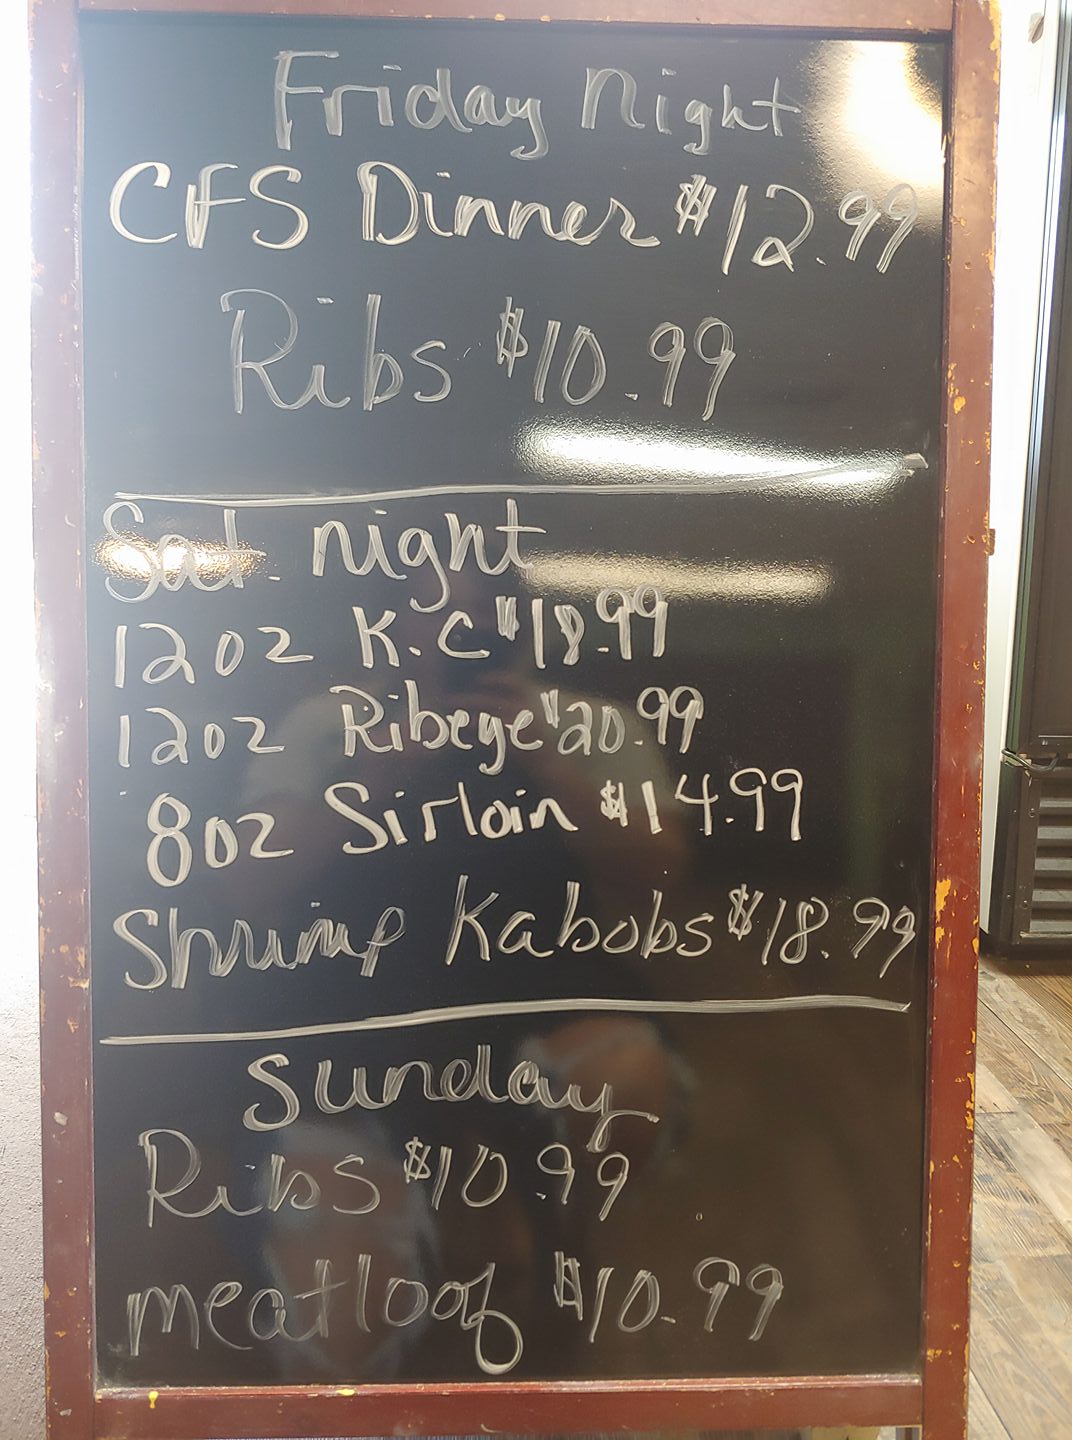 Friday Night
CFS Dinner $12.99
Ribs $10.99
Sat. night
12oz K.C $18.99
12oz Ribeye $20.99
8oz Sirloin $14.99
Shrimp Kabobs $18.99
Sunday
Ribs $10.99
meatloof $10.99